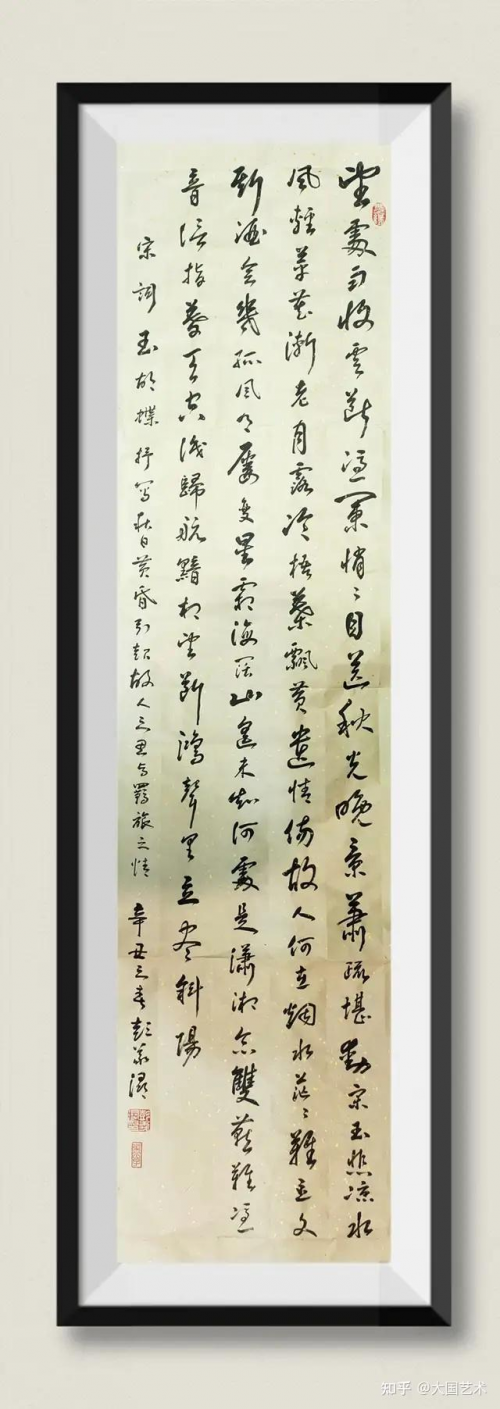 望處雨收雲斷憑闌悄〻目送秋光晚景蕭疏堪動宋玉悲凉水
風輕苹花漸老月露冷梧葉飄黃遣情傷故人何在烟水茫〻難忘文
期酒會幾孤風月屢變星霜海闊山遙未知何處是瀟湘念雙燕難憑
音信指暮天空識歸航黯相望斷鴻聲里立盡斜陽
宋詞玉胡蝶抒寫秋日黃昏引起故人之思与羈旅之情 辛丑之春彭
知乎 @大国艺术